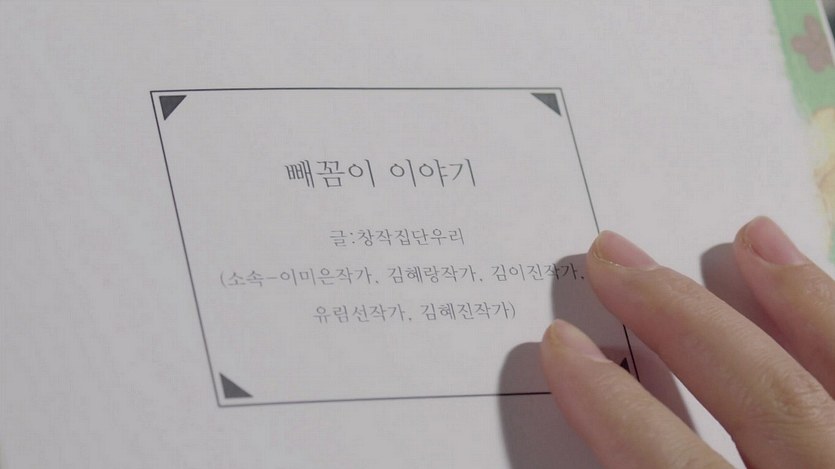 빼꼼이 이야기
글:창작집단우리
(소속-이미은작가, 김혜랑작가, 김이진작가,
유림선작가, 김혜진작가)